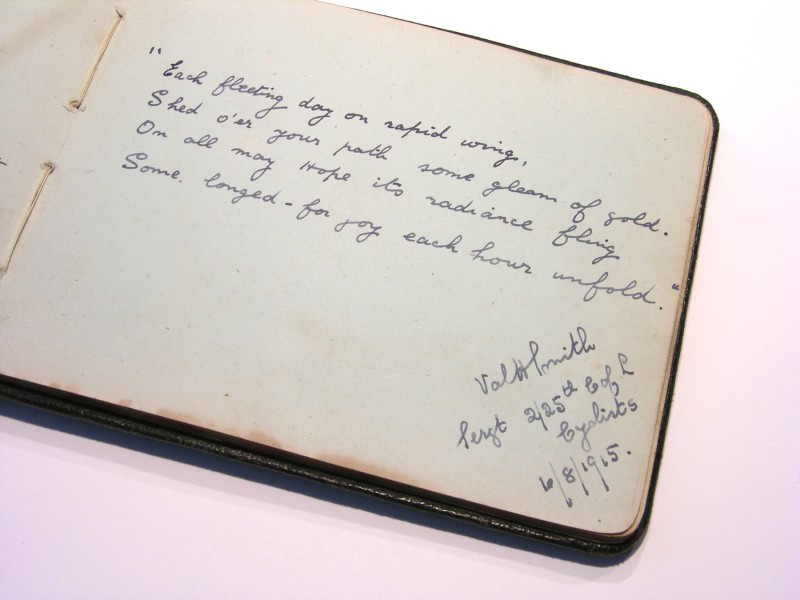 "Each fleeting day on rapid wing,
Shed o'er your path some gleam of gold.
On all may Hope its radiance fling
Some. longed-for joy each hour unfold."
Val H Smith
Sergt 2/25th C of L
Cyclists
6/8/1915.